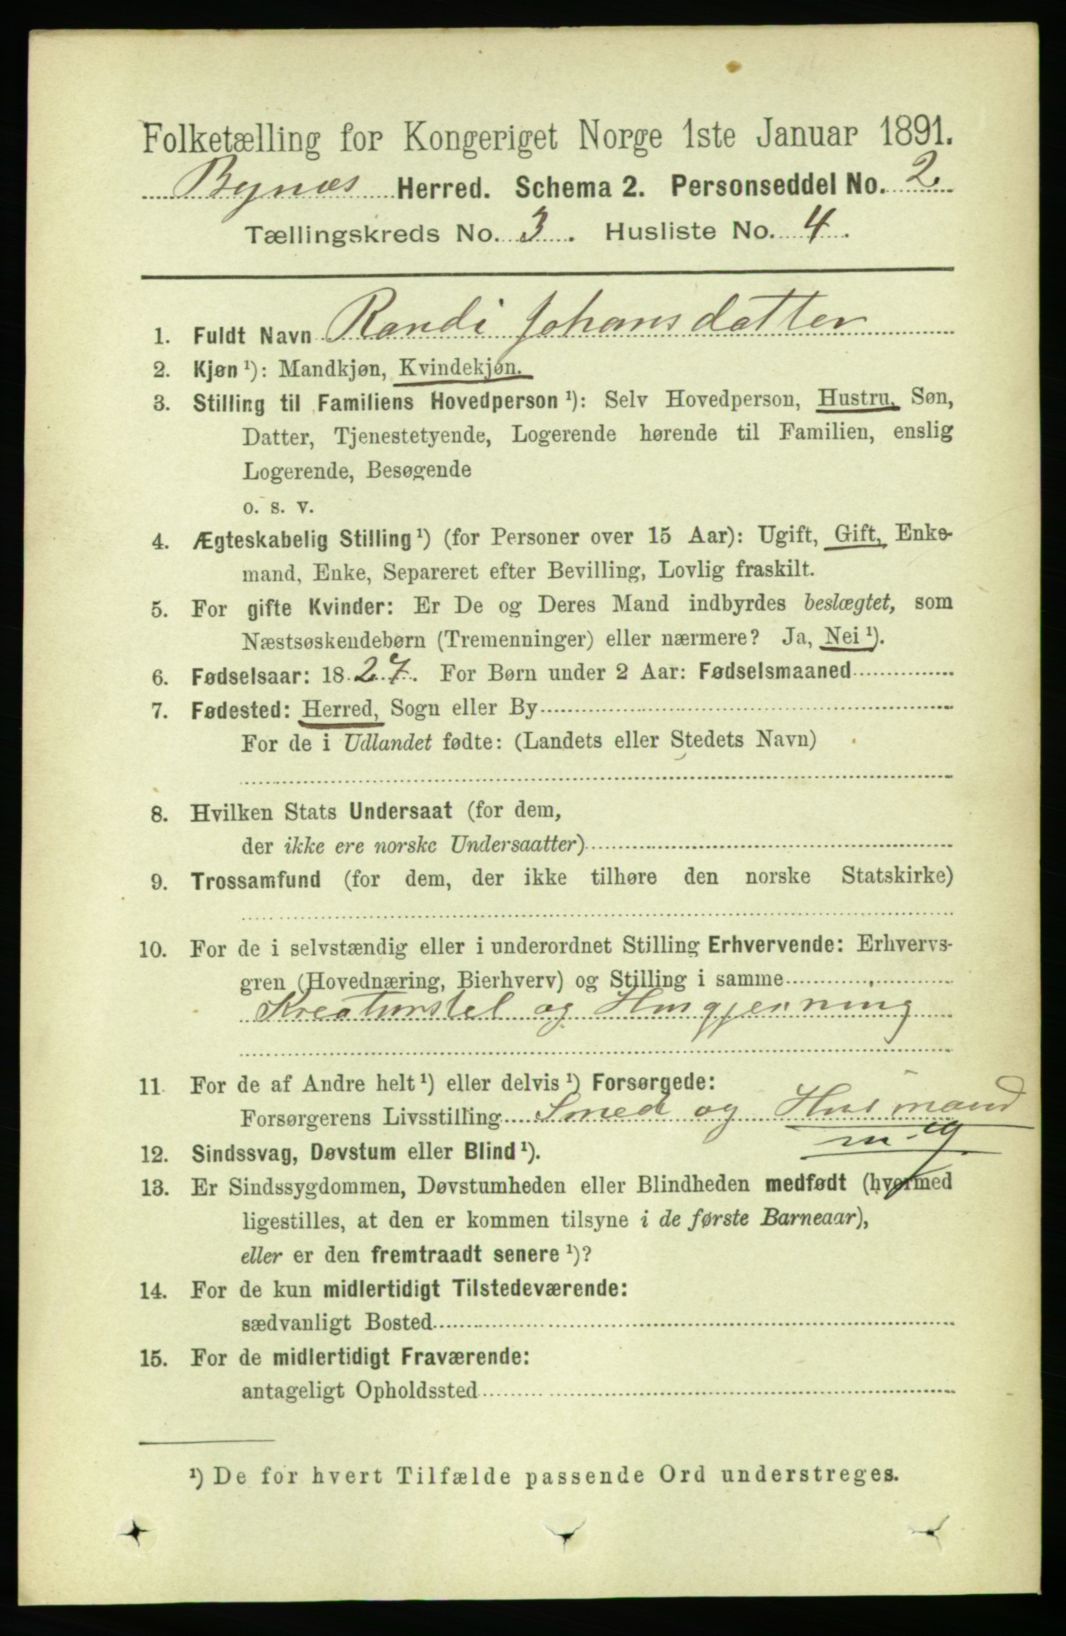 Folketælling for Kongeriget Norge 1ste Januar 1891.
Bynæs Herred. Schema 2. Personseddel No. 2.
Tællingskreds No. 3. Husliste No. 4.
1. Fuldt Navn Randi Johansdatter
2. Kjøn ¹): Mandkjøn, Kvindekjøn.
3. Stilling til Familiens Hovedperson ¹): Selv Hovedperson, Hustru, Søn,
Datter, Tjenestetyende, Logerende hørende til Familien, enslig
Logerende, Besøgende
o. s. v.
4. Ægteskabelig Stilling ¹) (for Personer over 15 Aar): Ugift, Gift, Enke-
mand, Enke, Separeret efter Bevilling, Lovlig fraskilt.
5. For gifte Kvinder: Er De og Deres Mand indbyrdes beslægtet, som
Næstsøskendebørn (Tremenninger) eller nærmere? Ja, Nei ¹).
6. Fødselsaar: 1827. For Børn under 2 Aar: Fødselsmaaned
7. Fødested: Herred, Sogn eller By
For de i Udlandet fødte: (Landets eller Stedets Navn)
8. Hvilken Stats Undersaat (for dem,
der ikke ere norske Undersaatter)
9. Trossamfund (for dem, der ikke tilhøre den norske Statskirke)
10. For de i selvstændig eller i underordnet Stilling Erhvervende: Erhvervs-
gren (Hovednæring, Bierhverv) og Stilling i samme
Kreaturstel og Husgjerning
11. For de af Andre helt ¹) eller delvis ¹) Forsørgede:
Forsørgerens Livsstilling Smed og Husmand
m. jg
12. Sindssvag, Døvstum eller Blind ¹).
13. Er Sindssygdommen, Døvstumheden eller Blindheden medfødt (hvormed
ligestilles, at den er kommen tilsyne i de første Barneaar),
eller er den fremtraadt senere ¹)?
14. For de kun midlertidigt Tilstedeværende:
sædvanligt Bosted
15. For de midlertidigt Fraværende:
antageligt Opholdssted
¹) De for hvert Tilfælde passende Ord understreges.